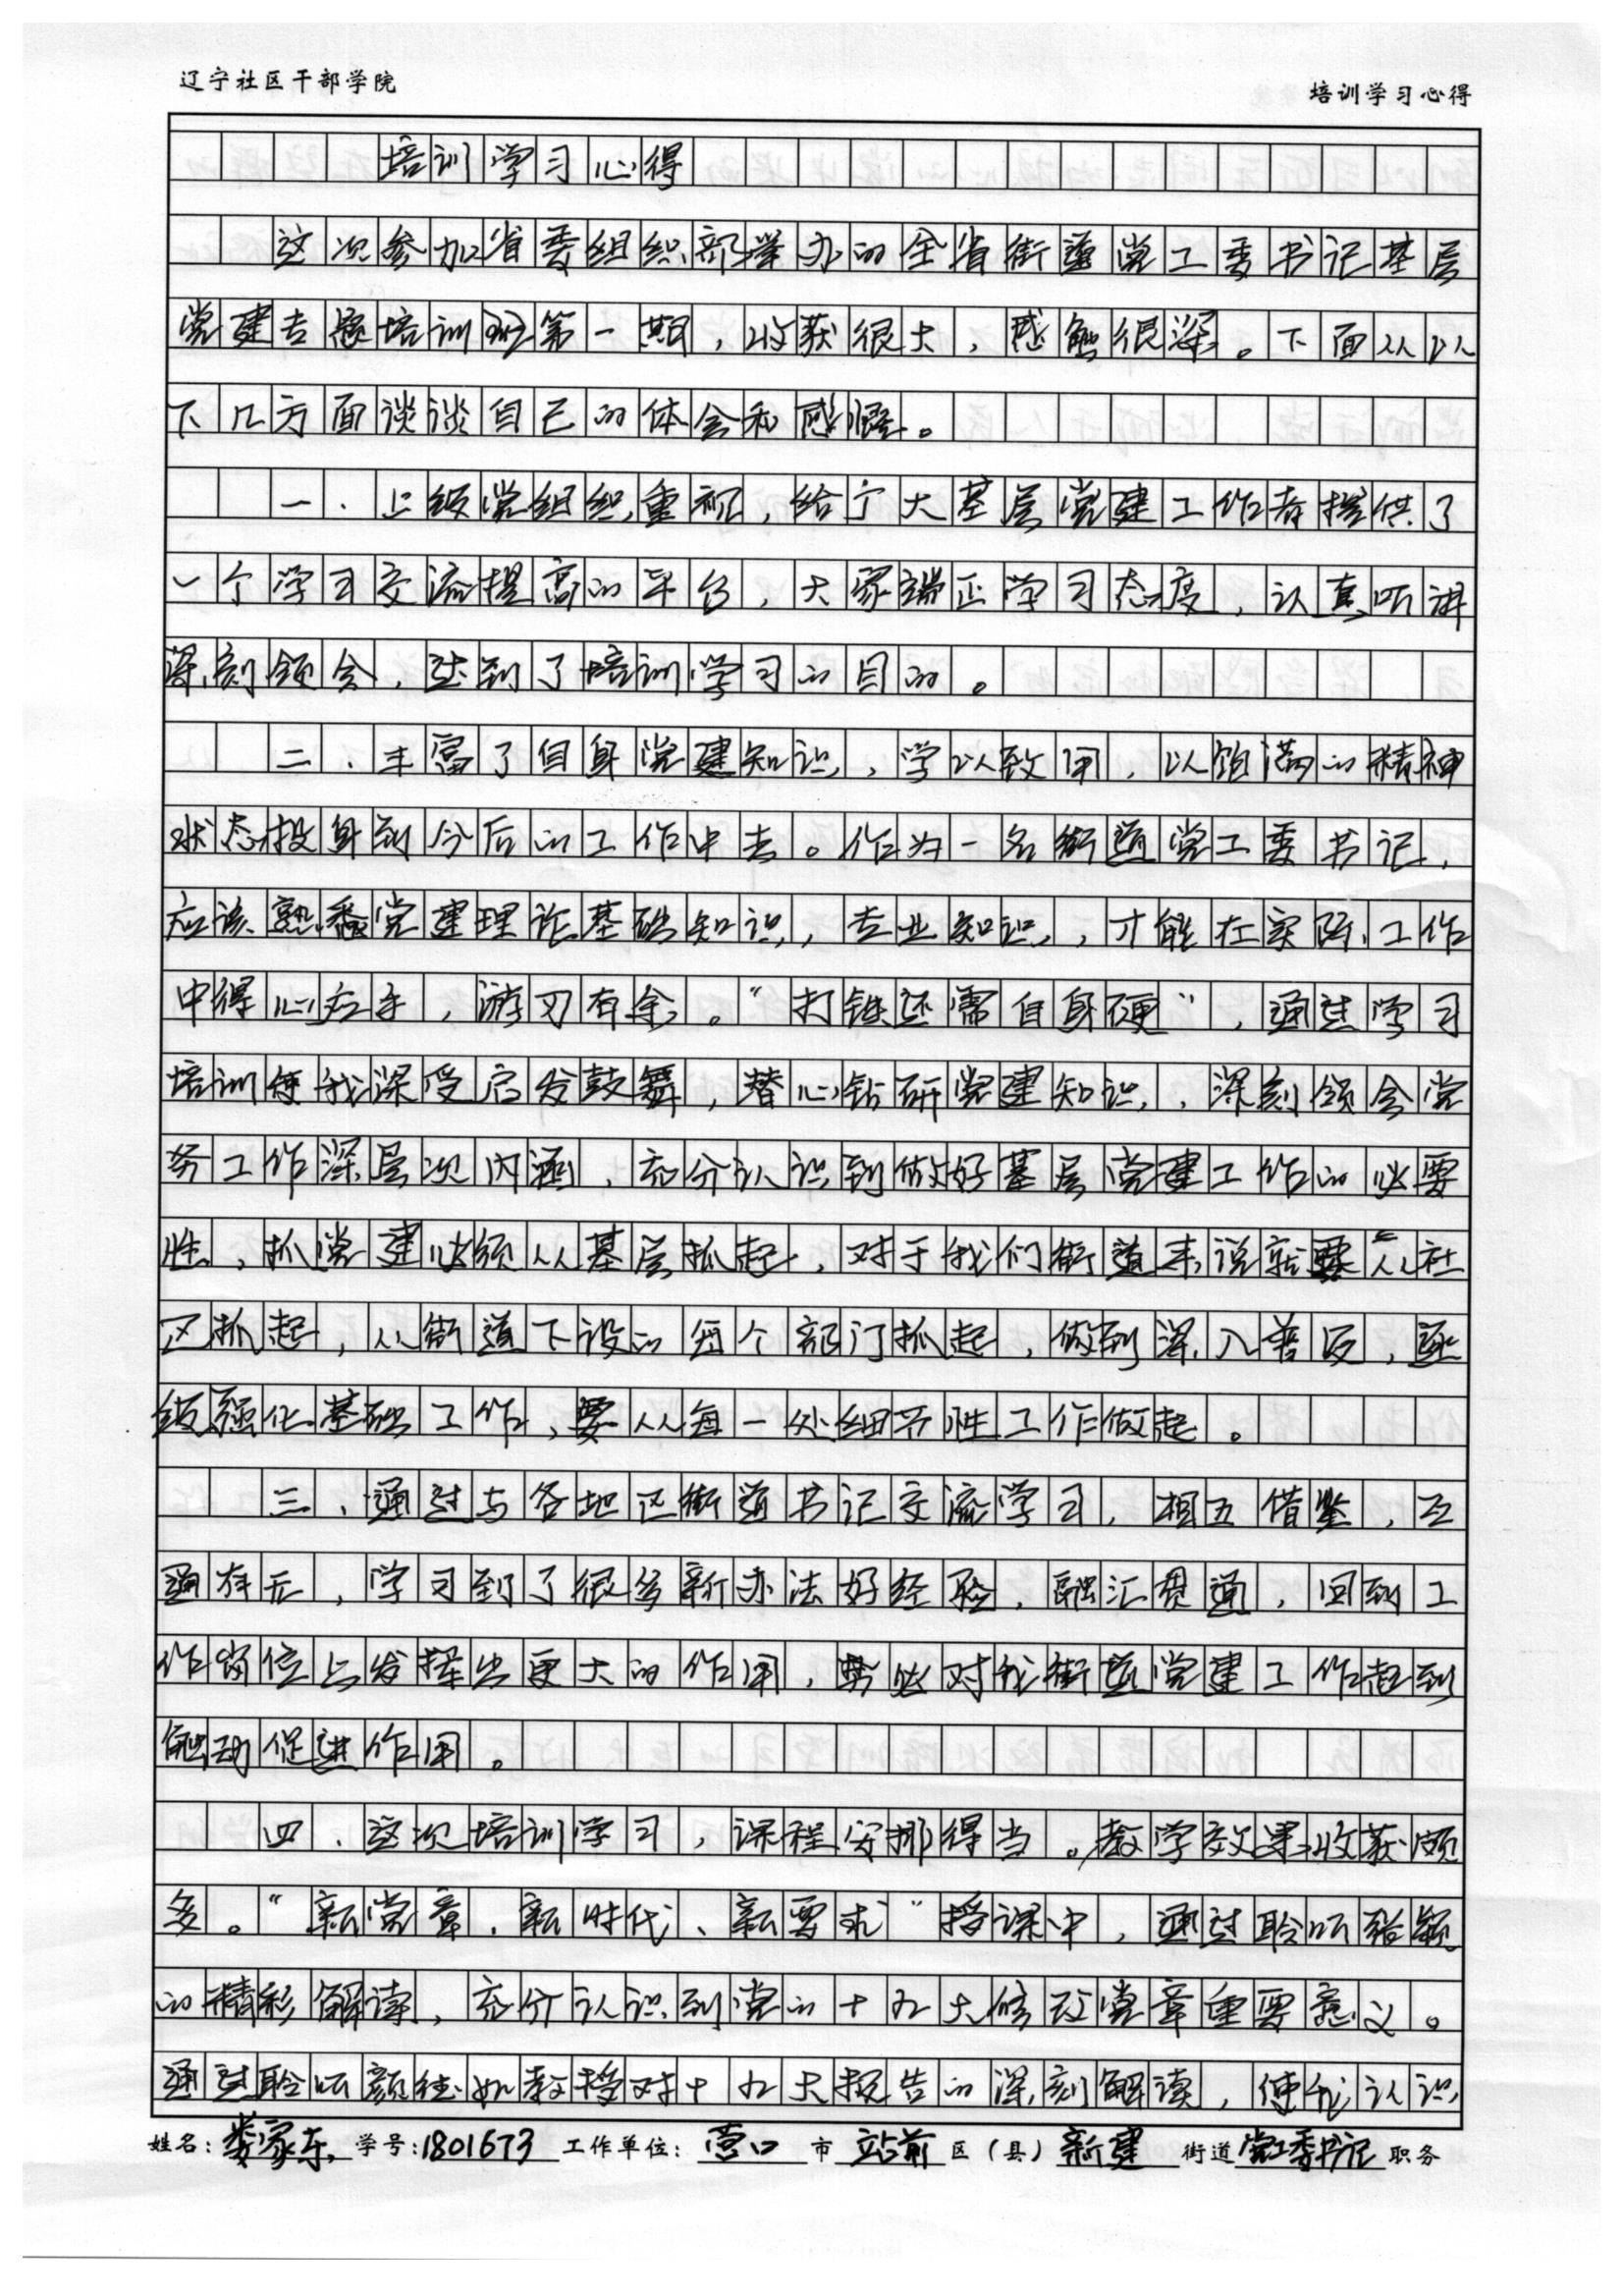 辽宁社区干部学院
培训学习心得
培训学习心得
这次参加省委组织部举办的全省街道党工委书记基层
党建专题培训班第一期，收获很大，感触很深。下面从以
下几方面谈谈自己的体会和感悟。
一、上级党组织重视，给广大基层党建工作者提供了
一个学习交流提高的平台，大家端正学习态度，认真听讲
深刻领会，达到了培训学习的目的。
二、丰富了自身党建知识，学以致用，以饱满的精神
状态投身到今后的工作中去。作为一名街道党工委书记，
应该熟悉党建理论基础知识，专业知识，才能在实际工作
中得心应手，游刃有余。“打铁还需自身硬”，通过学习
培训使我深受启发鼓舞，潜心钻研党建知识，深刻领会党
务工作深层次内涵，充分认识到做好基层党建工作的必要
性，抓党建必须从基层抓起，对于我们街道来说就要从社
区抓起，从街道下设的每个部门抓起，做到深入普及，逐
级强化基础工作，要从每一处细节性工作做起。
三、通过与各地区街道书记交流学习，相互借鉴，互
通有无，学习到了很多新办法好经验，融汇贯通，回到工
作岗位上发挥出更大的作用，势必对我街道党建工作起到
触动促进作用。
四、这次培训学习，课程安排得当。教学效果收获颇
多。“新党章、新时代、新要求”授课中，通过聆听张颖
的精彩解读，充分认识到党的十九大修改党章重要意义。
通过聆听颜佳如教授对十九大报告的深刻解读，使我认识
姓名：娄家东 学号：1801673 工作单位：营口 市 站前 区（县）新建 街道 党工委书记 职务